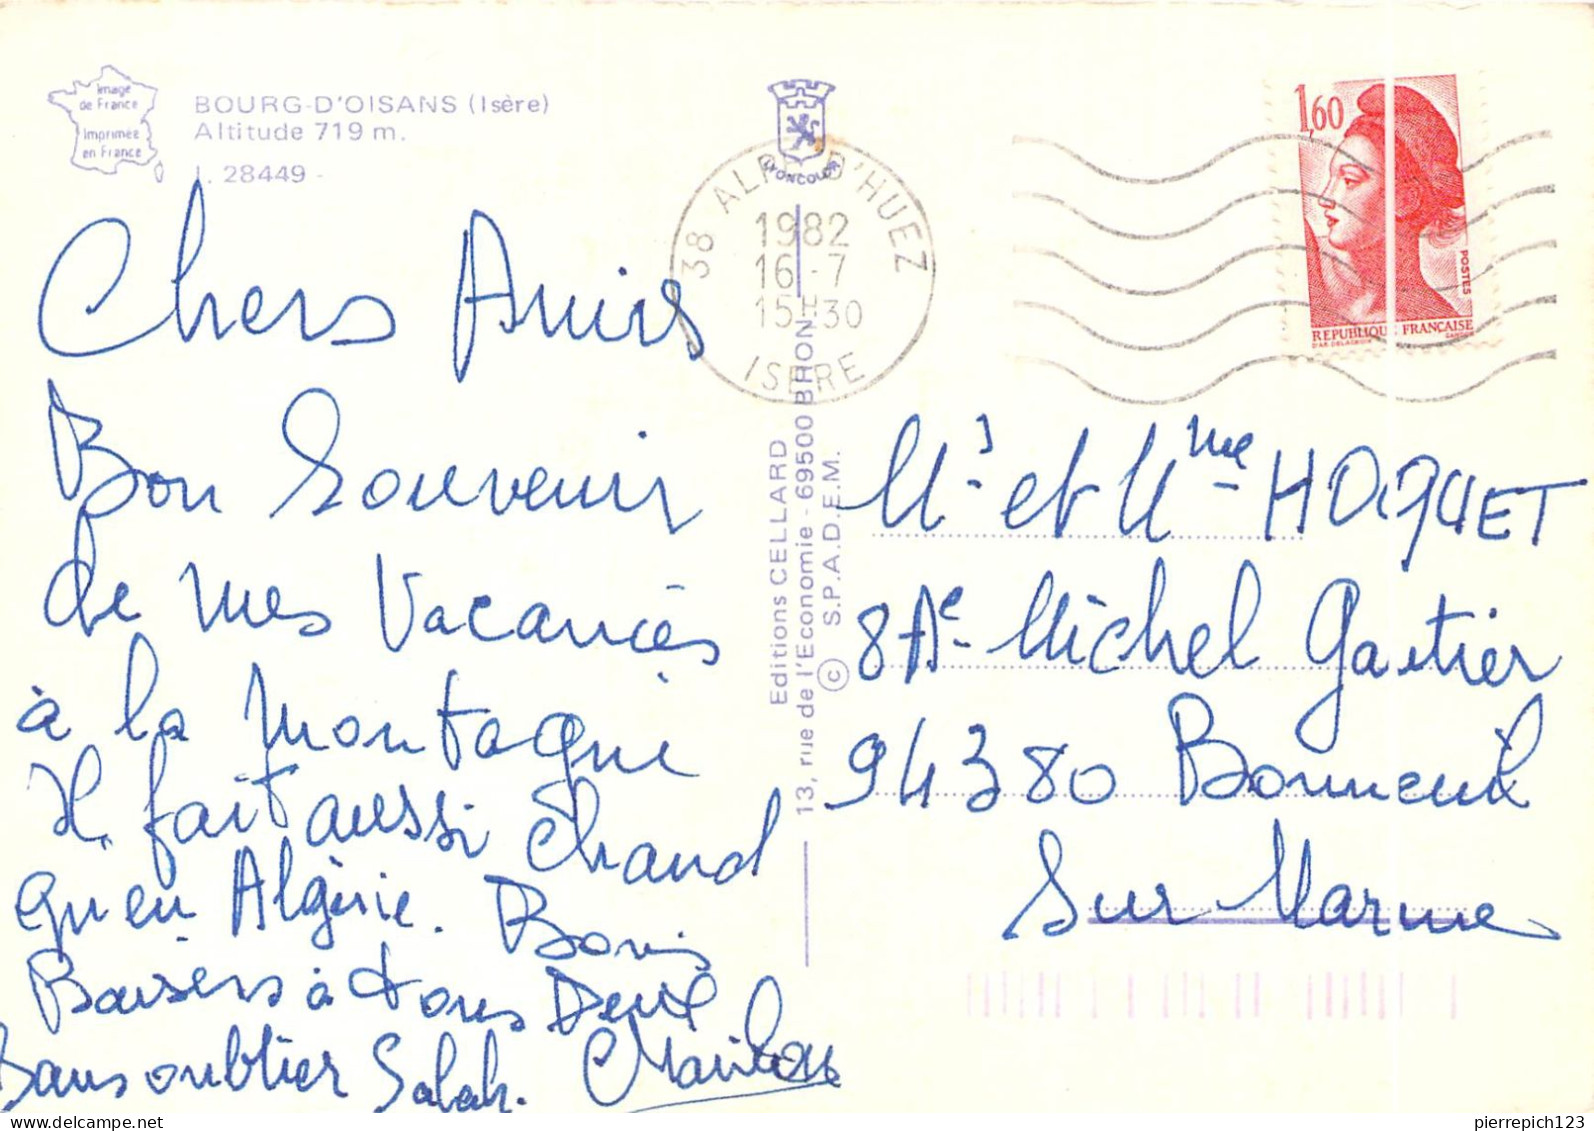 Image
de France
Imprimée
en France
BOURG-D'OISANS (Isère)
Altitude 719 m.
I. 28449 -
LYONCOLOR
38 ALPE D'HUEZ
1982
16-7
15H30
ISERE
1,60
POSTES
REPUBLIQUE FRANCAISE
D'AP. DELACROIX GANDON
Editions CELLARD
13, rue de l'Economie - 69500 BRON
© S.P.A.D.E.M.
Chers Amis
Bon Souvenir
de mes Vacances
à la Montagne
Il fait aussi Chaud
qu'en Algérie. Bons
Baisers à tous Deux
Sans oublier Salah.
Mr et Mme HOQUET
8 Ae Michel Gautier
94380 Bonneuil
Sur Marne
pierrepich123